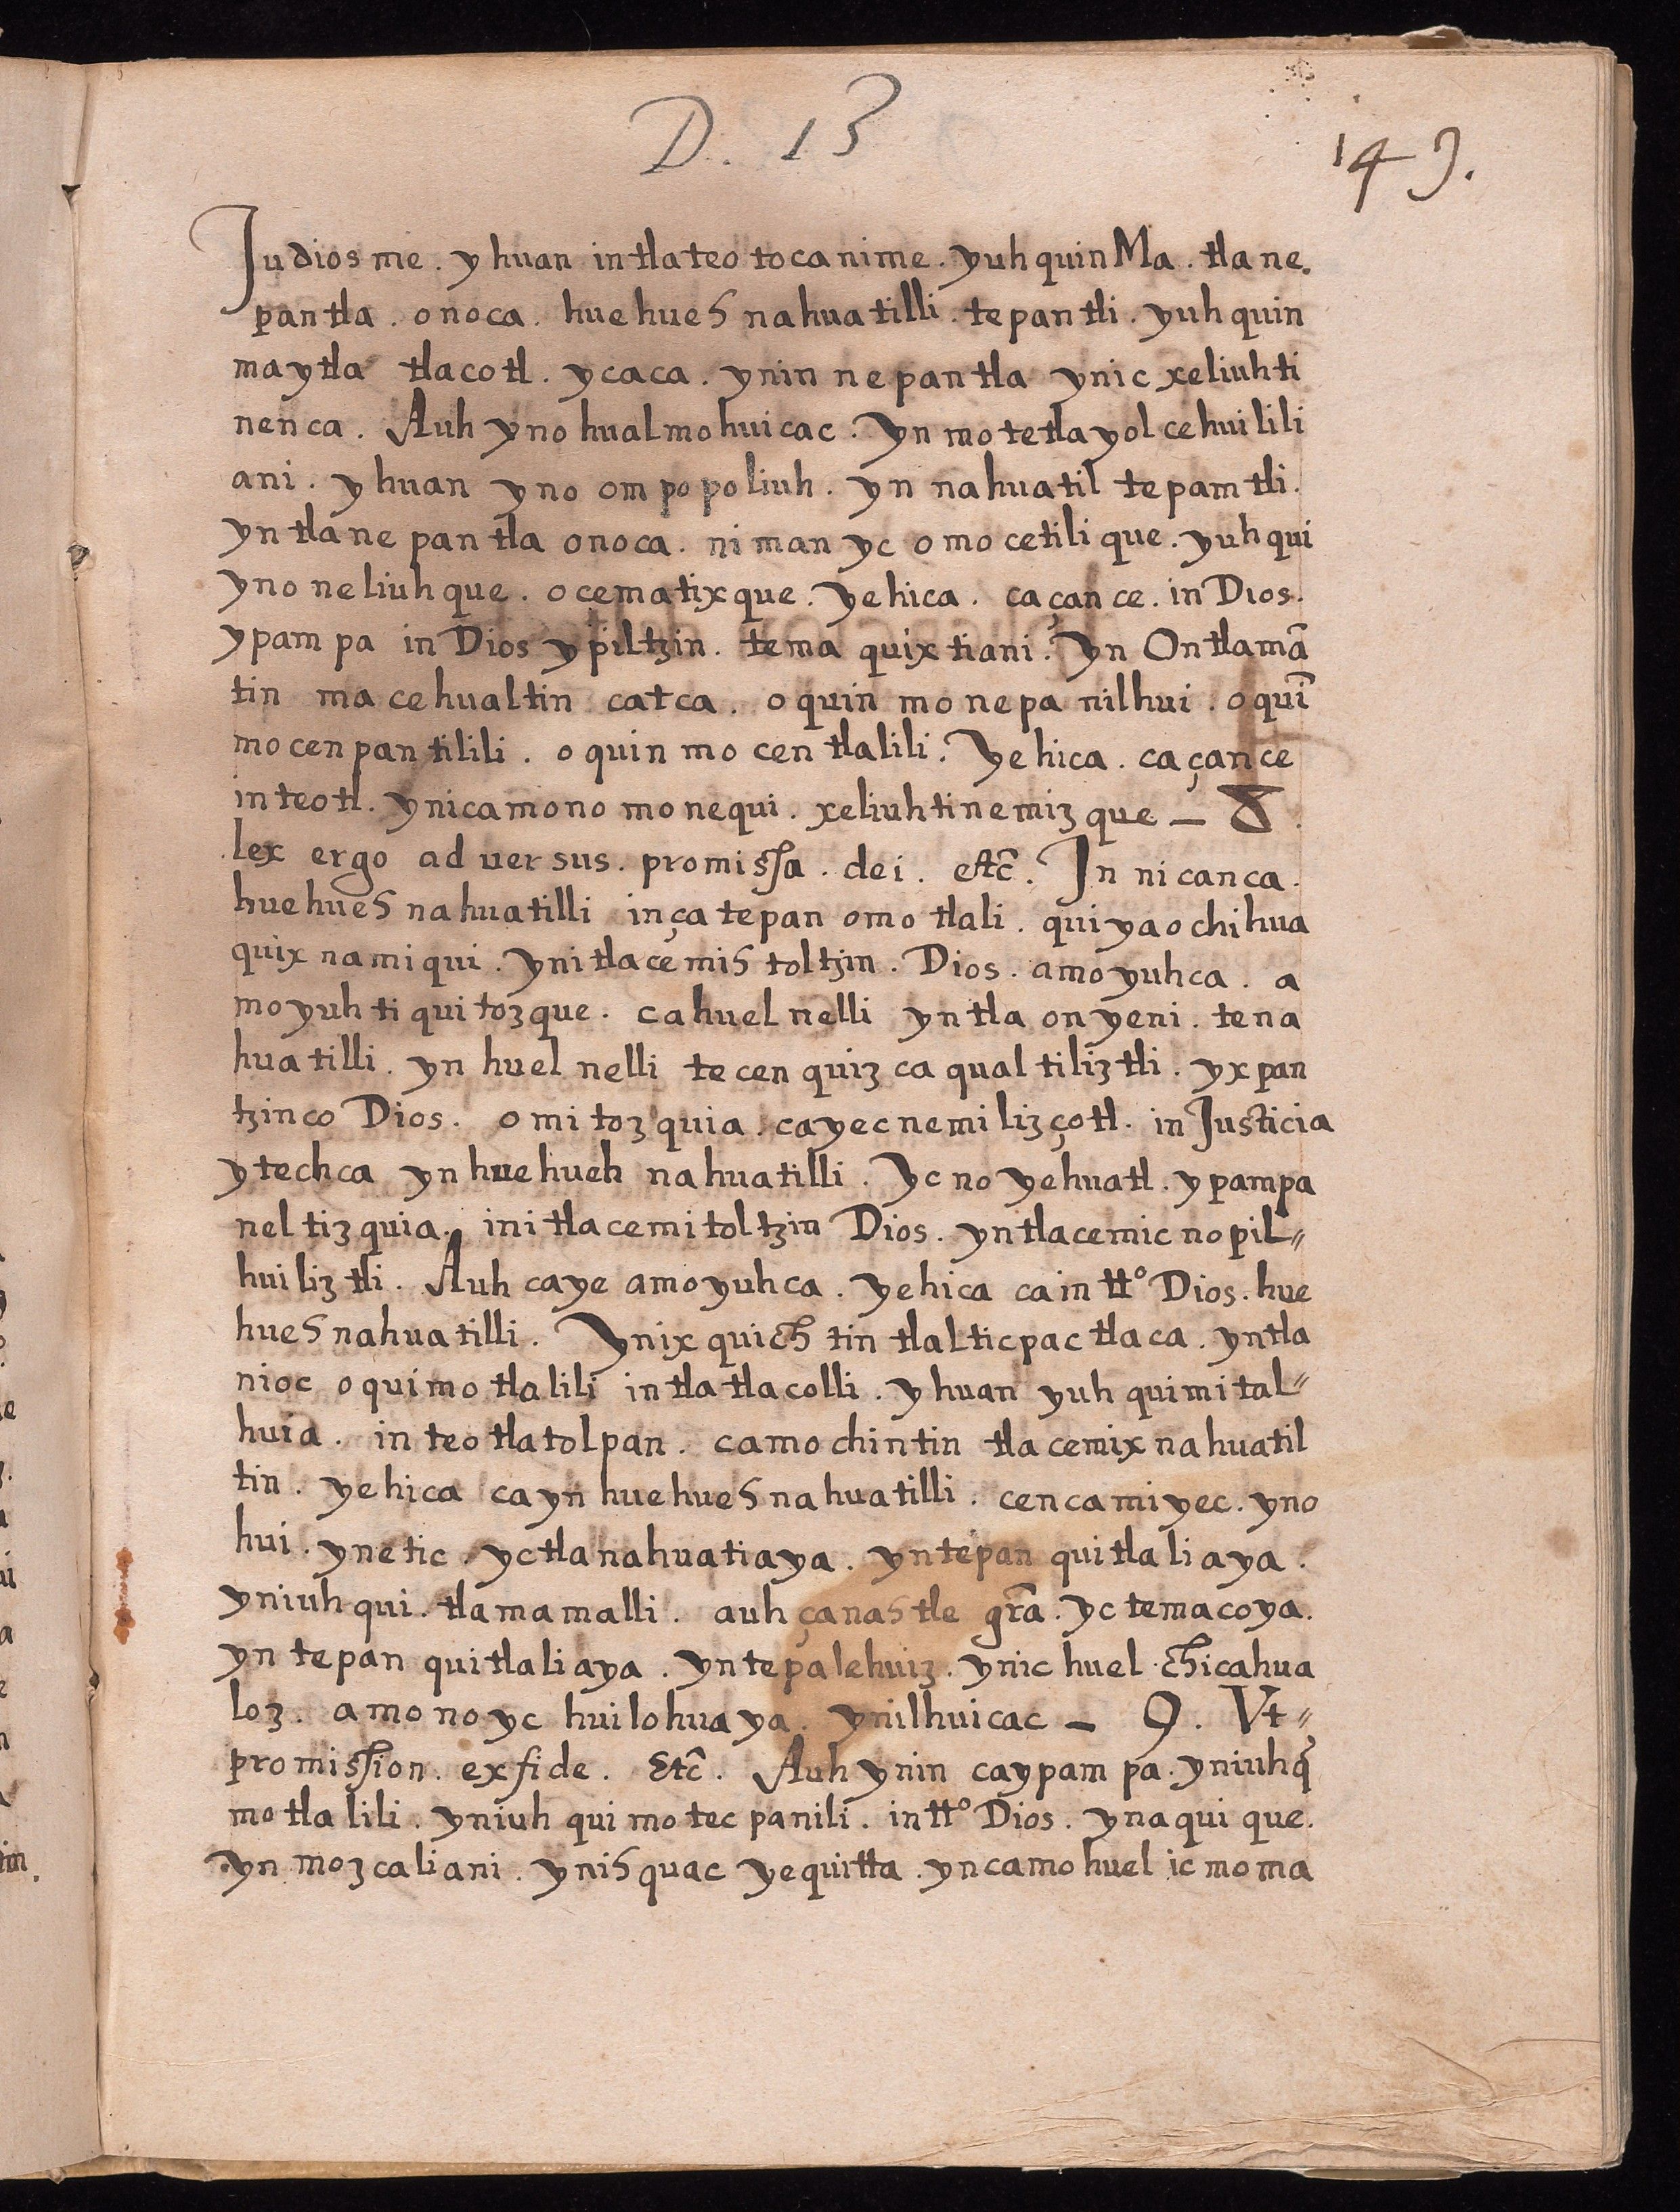 D. 13
149.
Judios me. y huan in tlateo tocanime. yuh quin Ma. tlane.
pantla. onoca. huehues nahuatilli. tepantli. yuh quin
maytla tlacotl. ycaca. ynin nepantla ynic xeliuhti
nenca. Auh yno hualmohuicac. Yn motetlayolcehuilili
ani. y huan yno ompopoliuh. yn nahuatil tepamtli.
yntlane pantla onoca. niman yc omocetilique. yuhqui
ynoneliuhque. oçematixque. yehica. caçan ce. in Dios.
ypampa in Dios ypiltzin. tema quixtiani. Yn Ontlamā
tin macehualtin catca. oquin monepanilhui. oquī
mocenpantilili. oquin mo centlalili. Yehica. caçan ce
in teotl. ynicamono monequi. xeliuhtinemizque — 8.
lex ergo ad uersus. promissa. dei. etc̄. In nicanca.
huehues nahuatilli inçatepan omotlali. quiyaochihua
quixnamiqui. ynitlacemis toltzin. Dios. amoyuhca. a
moyuh tiquitozque. cahuel nelli yntla onyeni. tena
huatilli. yn huel nelli tecenquizca qualtiliztli. yxpan
tzinco Dios. omitozquia. cayecnemilizçotl. in Justicia
ytechca yn huehueh nahuatilli. Yc no yehuatl. ypampa
neltizquia. initlacemitoltzin Dios. yntlacemicnopil〃
huiliztli. Auh caye amoyuhca. yehica cain tt° Dios. hue
hues nahuatilli. Ynixquich tin tlalticpactlaca. yntla
nioc oquimotlalili in tlatlacolli. y huan yuh quimital〃
huia. in teotlatolpan. camochintin tlacemixnahuatil
tin. yehica cayn huehues nahuatilli. cencamiyec. yno
hui. ynetic. yctlanahuatiaya. yntepan quitlaliaya.
yniuhqui. tlamamalli. auh çanastle grā. yc temacoya.
yn tepan quitlaliaya. yntepalehuiz. ynic huel chicahua
loz. amonoyc huilohuaya. ynilhuicac — 9. Vt〃
promission. exfide. Etc̄. Auh ynin caypampa. yniuhq̄
motlalili. yniuh quimotecpanili. in tt° Dios. ynaquique.
yn mozcaliani. ynisquac yequitta. yncamohuel ic moma